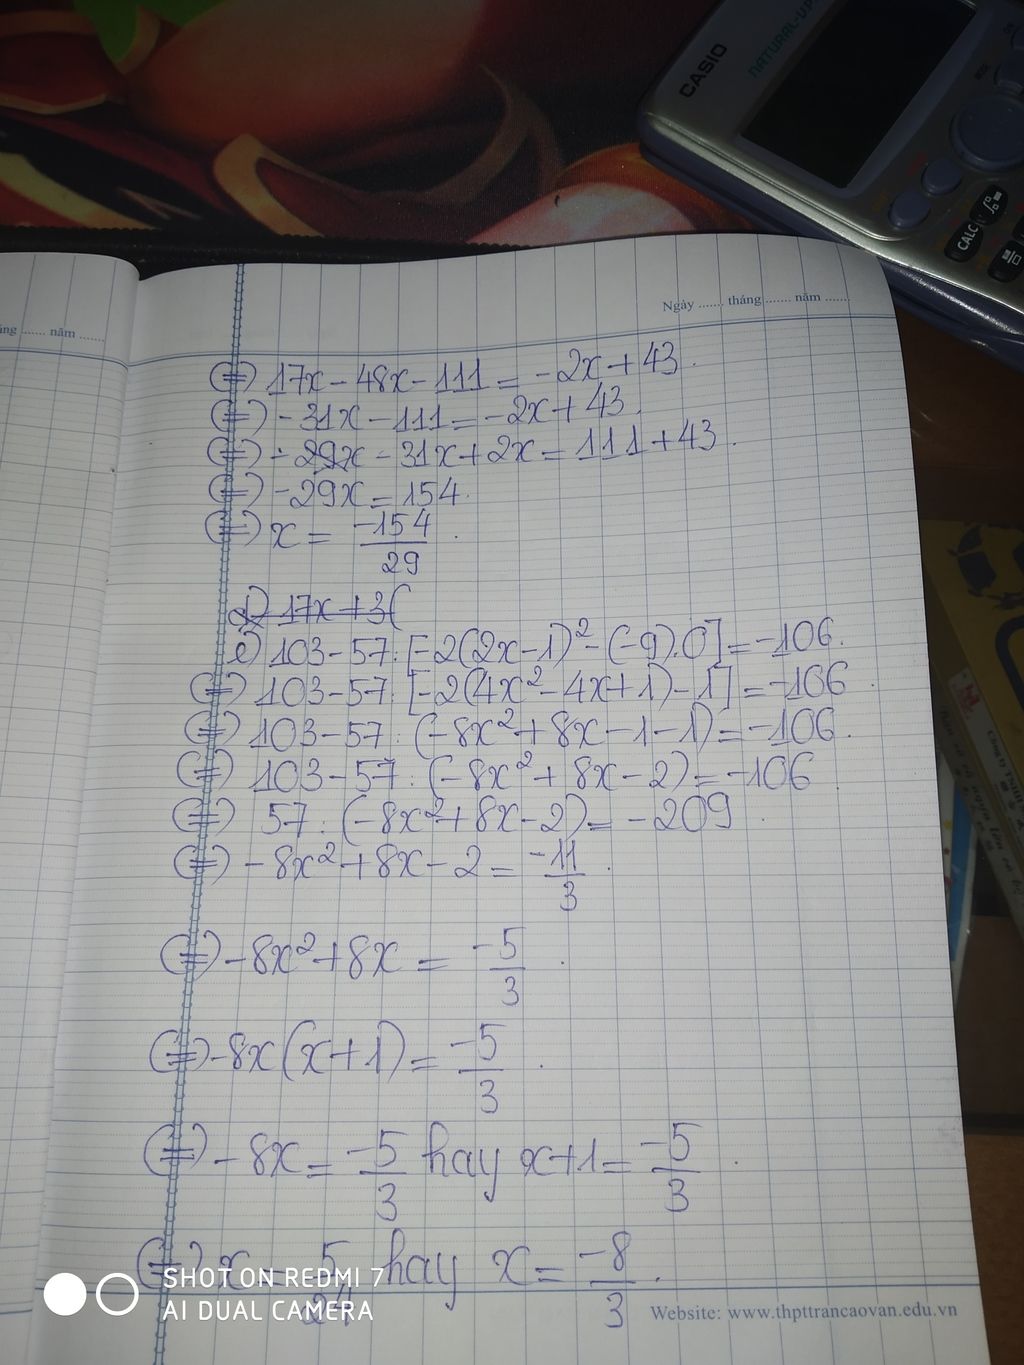 CASIO
NATURAL-V.P.
CALC
Ngày ....... tháng ....... năm .......
năm .......
⇔ 17x - 48x - 111 = -2x + 43.
⇔ -31x - 111 = -2x + 43.
⇔ - 29x - 31x + 2x = 111 + 43.
⇔ -29x = 154.
⇔ x = -154/29.
d) 17x + 3(
e) 103 - 57 : [-2(2x - 1)² - (-9).0] = -106.
⇔ 103 - 57 : [-2(4x² - 4x + 1) - 1] = -106.
⇔ 103 - 57 : (-8x² + 8x - 1 - 1) = -106.
⇔ 103 - 57 : (-8x² + 8x - 2) = -106
⇔ 57 : (-8x² + 8x - 2) = -209.
⇔ -8x² + 8x - 2 = -11/3.
⇔ -8x² + 8x = -5/3.
⇔ -8x(x + 1) = -5/3.
⇔ -8x = -5/3 hay x + 1 = -5/3.
⇔ x = 5/24 hay x = -8/3.
SHOT ON REDMI 7
AI DUAL CAMERA
Website: www.thpttrancaovan.edu.vn